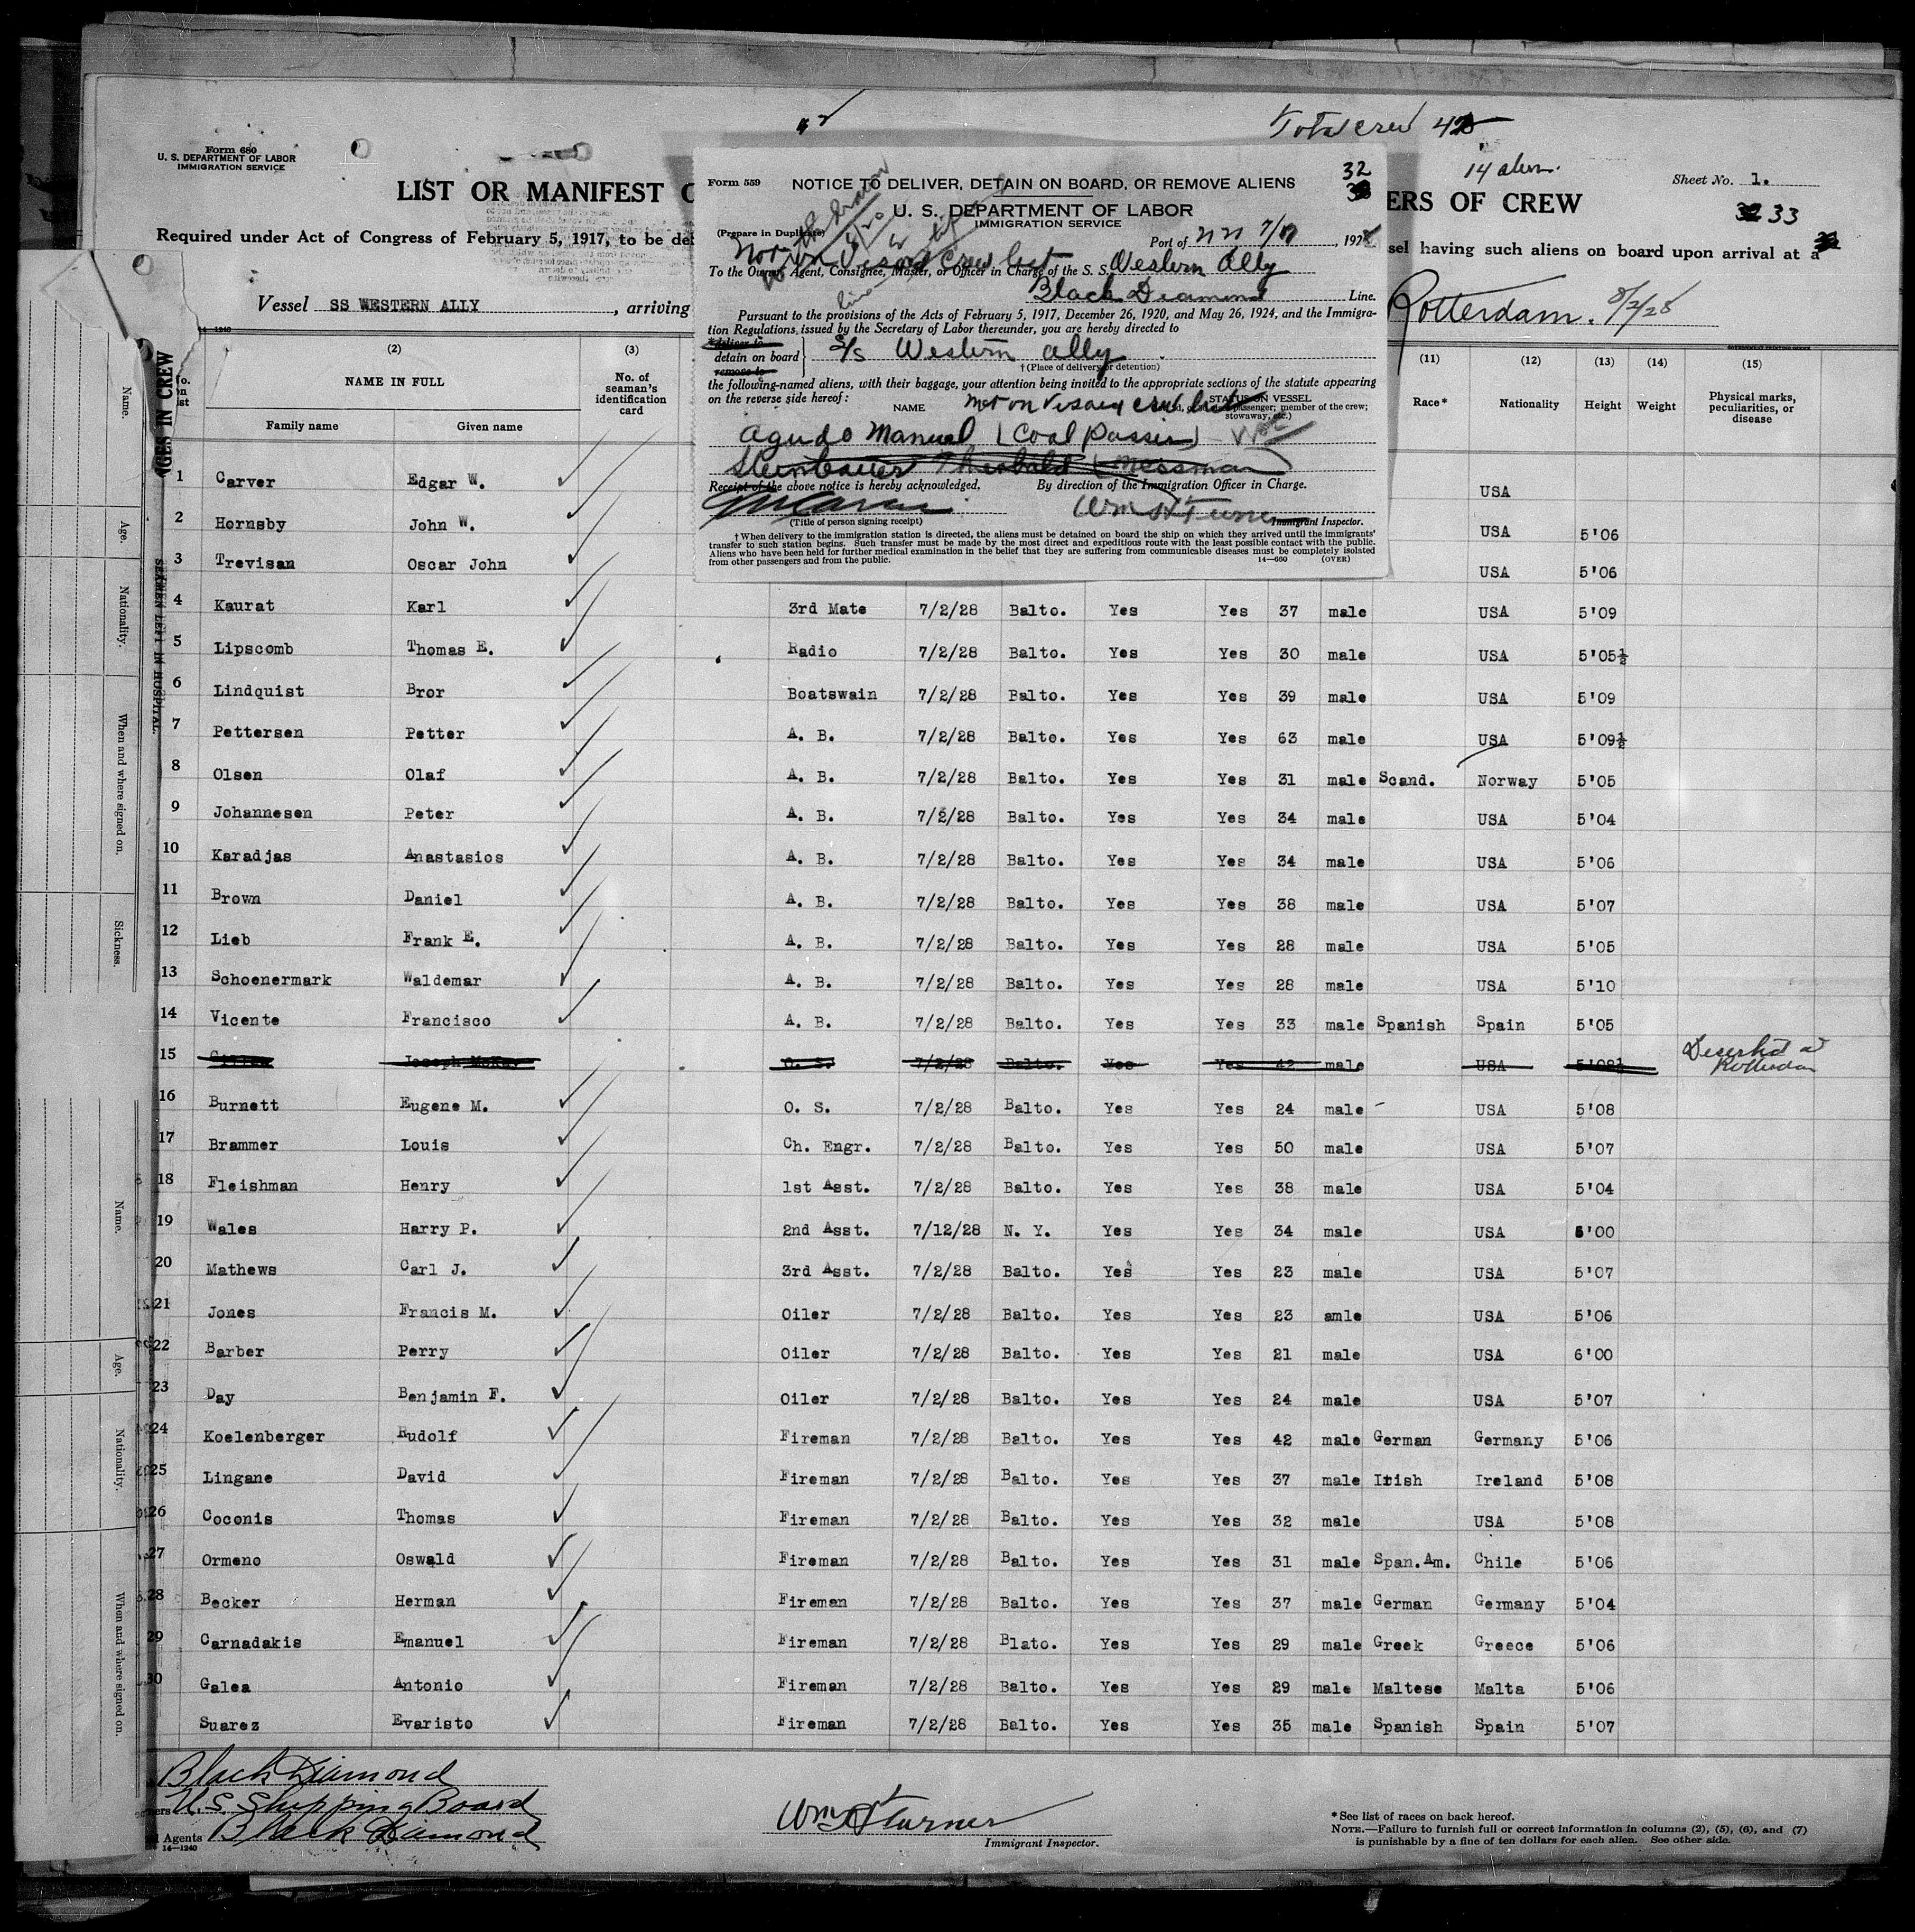 Total crew
14 alien.
Form 680
U. S. DEPARTMENT OF LABOR
IMMIGRATION SERVICE
Sheet No. 1.
33
LIST OR MANIFEST O
ERS OF CREW
Required under Act of Congress of February 5, 1917, to be del
sel having such aliens on board upon arrival at a
Vessel SS WESTERN ALLY , arriving
Rotterdam. 8/2/28
Form 559
NOTICE TO DELIVER, DETAIN ON BOARD, OR REMOVE ALIENS
32
U. S. DEPARTMENT OF LABOR
IMMIGRATION SERVICE
(Prepare in Duplicate)
Port of , 192
To the Owner, Agent, Consignee, Master, or Officer in Charge of the S. S. Western Ally
Black Diamond Line.
Pursuant to the provisions of the Acts of February 5, 1917, December 26, 1920, and May 26, 1924, and the Immigra-
tion Regulations, issued by the Secretary of Labor thereunder, you are hereby directed to
*deliver to
detain on board
remove to
S/S Western Ally
† (Place of delivery or detention)
the following-named aliens, with their baggage, your attention being invited to the appropriate sections of the statute appearing
on the reverse side hereof:
NAME
STATUS ON VESSEL
passenger; member of the crew;
stowaway, etc.)
Agudo Manuel (Coal Passer)
Steinbauer Theobald (Messman)
Receipt of the above notice is hereby acknowledged.
By direction of the Immigration Officer in Charge.
Wm H Turner
Immigrant Inspector.
(Title of person signing receipt)
† When delivery to the immigration station is directed, the aliens must be detained on board the ship on which they arrived until the immigrants'
transfer to such station begins. Such transfer must be made by the most direct and expeditious route with the least possible contact with the public.
Aliens who have been held for further medical examination in the belief that they are suffering from communicable diseases must be completely isolated
from other passengers and from the public.
14—660 (OVER)
(2) (3) (11) (12) (13) (14) (15)
NAME IN FULL
Family name Given name
No. of seaman's identification card
Race* Nationality Height Weight Physical marks, peculiarities, or disease
1 Carver Edgar W. USA
2 Hornsby John W. USA 5'06
3 Trevisan Oscar John USA 5'06
4 Kaurat Karl 3rd Mate 7/2/28 Balto. Yes Yes 37 male USA 5'09
5 Lipscomb Thomas E. Radio 7/2/28 Balto. Yes Yes 30 male USA 5'05½
6 Lindquist Bror Boatswain 7/2/28 Balto. Yes Yes 39 male USA 5'09
7 Pettersen Petter A. B. 7/2/28 Balto. Yes Yes 63 male USA 5'09½
8 Olsen Olaf A. B. 7/2/28 Balto. Yes Yes 31 male Scand. Norway 5'05
9 Johannesen Peter A. B. 7/2/28 Balto. Yes Yes 34 male USA 5'04
10 Karadjas Anastasios A. B. 7/2/28 Balto. Yes Yes 34 male USA 5'06
11 Brown Daniel A. B. 7/2/28 Balto. Yes Yes 38 male USA 5'07
12 Lieb Frank E. A. B. 7/2/28 Balto. Yes Yes 28 male USA 5'05
13 Schoenermark Waldemar A. B. 7/2/28 Balto. Yes Yes 28 male USA 5'10
14 Vicente Francisco A. B. 7/2/28 Balto. Yes Yes 33 male Spanish Spain 5'05
15 Joseph McKay O. S. 7/2/28 Balto. Yes Yes 42 male USA 5'08½ Deserted at Rotterdam
16 Burnett Eugene M. O. S. 7/2/28 Balto. Yes Yes 24 male USA 5'08
17 Brammer Louis Ch. Engr. 7/2/28 Balto. Yes Yes 50 male USA 5'07
18 Fleishman Henry 1st Asst. 7/2/28 Balto. Yes Yes 38 male USA 5'04
19 Wales Harry P. 2nd Asst. 7/12/28 N. Y. Yes Yes 34 male USA 6'00
20 Mathews Carl J. 3rd Asst. 7/2/28 Balto. Yes Yes 23 male USA 5'07
21 Jones Francis M. Oiler 7/2/28 Balto. Yes Yes 23 amle USA 5'06
22 Barber Perry Oiler 7/2/28 Balto. Yes Yes 21 male USA 6'00
23 Day Benjamin F. Oiler 7/2/28 Balto. Yes Yes 24 male USA 5'07
24 Koelenberger Rudolf Fireman 7/2/28 Balto. Yes Yes 42 male German Germany 5'06
25 Lingane David Fireman 7/2/28 Balto. Yes Yes 37 male Irish Ireland 5'08
26 Coconis Thomas Fireman 7/2/28 Balto. Yes Yes 32 male USA 5'08
27 Ormeno Oswald Fireman 7/2/28 Balto. Yes Yes 31 male Span.Am. Chile 5'06
28 Becker Herman Fireman 7/2/28 Balto. Yes Yes 37 male German Germany 5'04
29 Carnadakis Emanuel Fireman 7/2/28 Blato. Yes Yes 29 male Greek Greece 5'06
30 Galea Antonio Fireman 7/2/28 Balto. Yes Yes 29 male Maltese Malta 5'06
Suarez Evaristo Fireman 7/2/28 Balto. Yes Yes 35 male Spanish Spain 5'07
Black Diamond
U.S. Shipping Board
Agents Black Diamond
14—1240
Wm H Turner
Immigrant Inspector.
* See list of races on back hereof.
NOTE.—Failure to furnish full or correct information in columns (2), (5), (6), and (7)
is punishable by a fine of ten dollars for each alien. See other side.
GES IN CREW
SEAMEN LEFT IN HOSPITAL
Name.
Age.
Nationality.
When and where signed on.
Sickness.
Name.
Age.
Nationality.
When and where signed on.